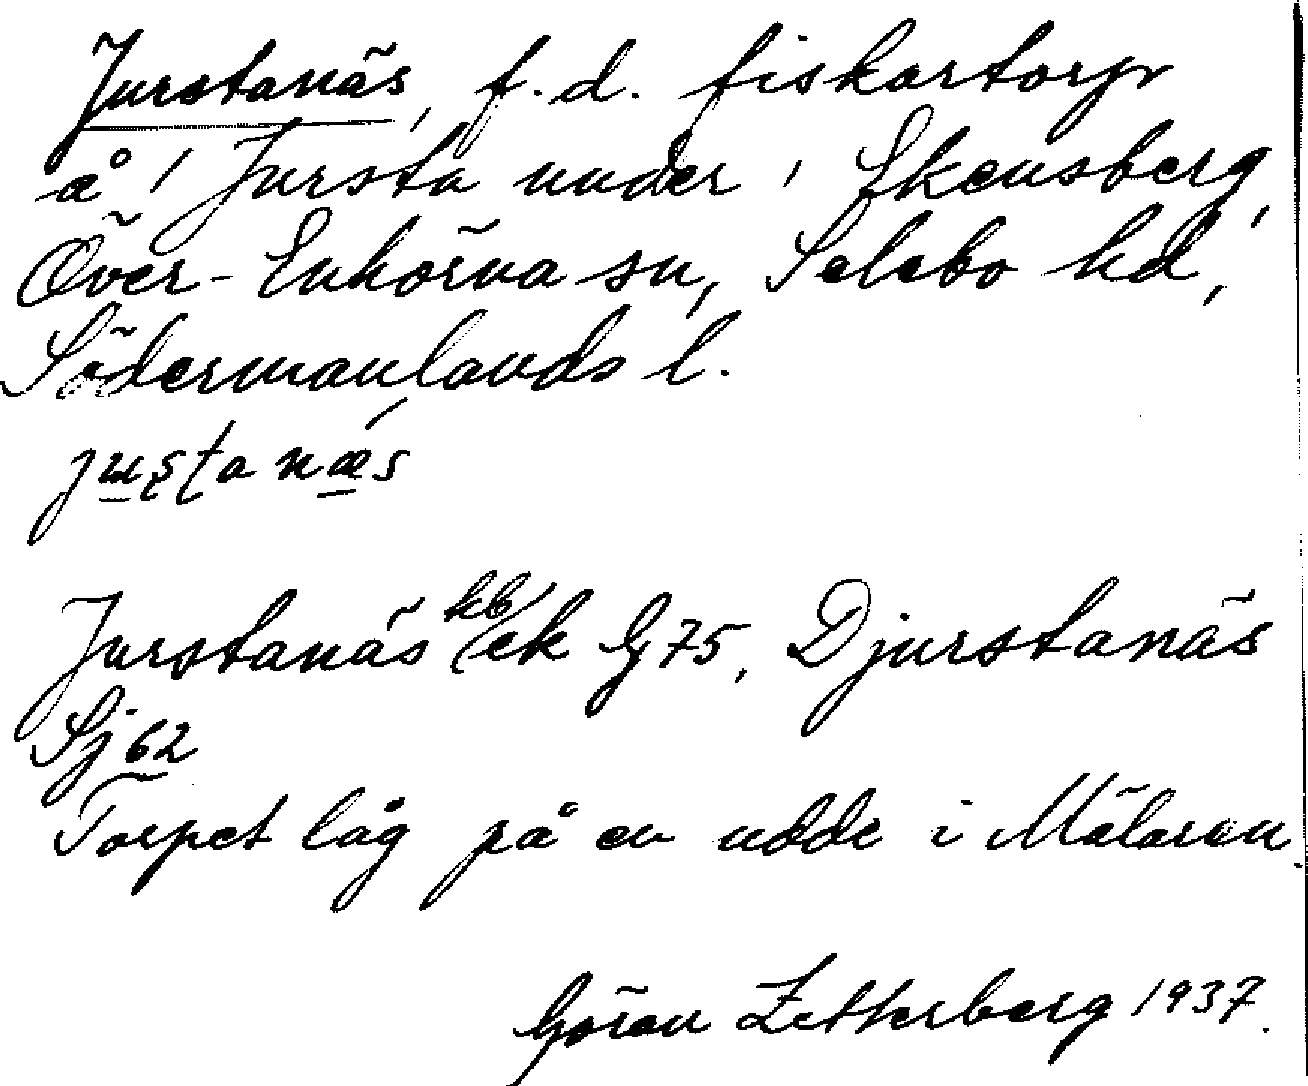 Jurstanäs, f. d. fiskartorp
å ' Jursta under ' Ekensberg,
Över-Enhörna sn, Selebo hd,
Södermanlands l.
Jurstanäs kb/ek G 75, Djurstanäs
Sj 62
Torpet låg på en udde i Mälaren.
Göran Zetterberg 1937.